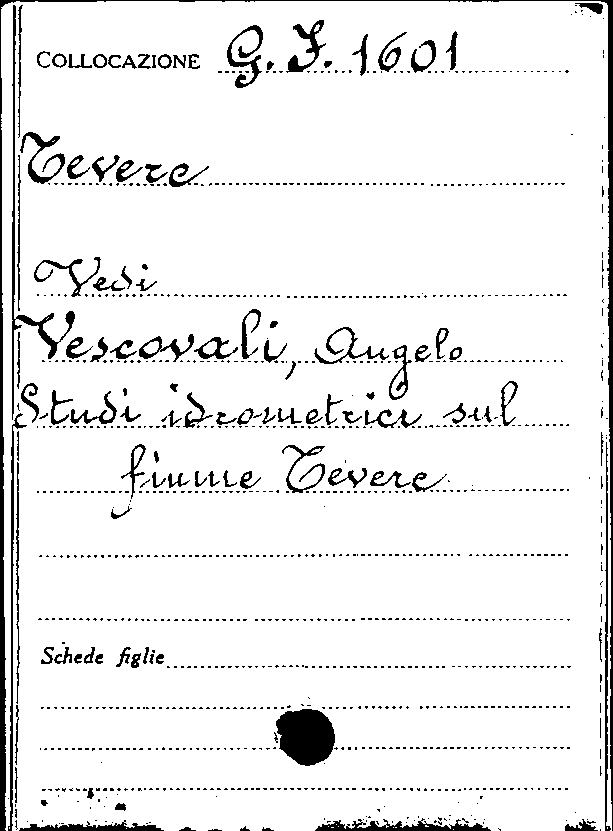 COLLOCAZIONE G. I. 1601
Tevere
Vedi
Vescovali, Angelo
Studi idrometrici sul
fiume Tevere
Schede figlie